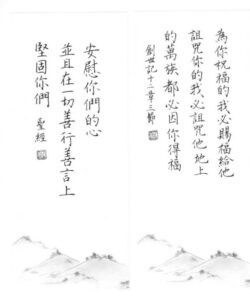 為你祝福的我必賜福給他
詛咒你的我必詛咒他地上
的萬族都必因你得福
創世記十二章三節
安慰你們的心
並且在一切善行善言上
堅固你們
聖經